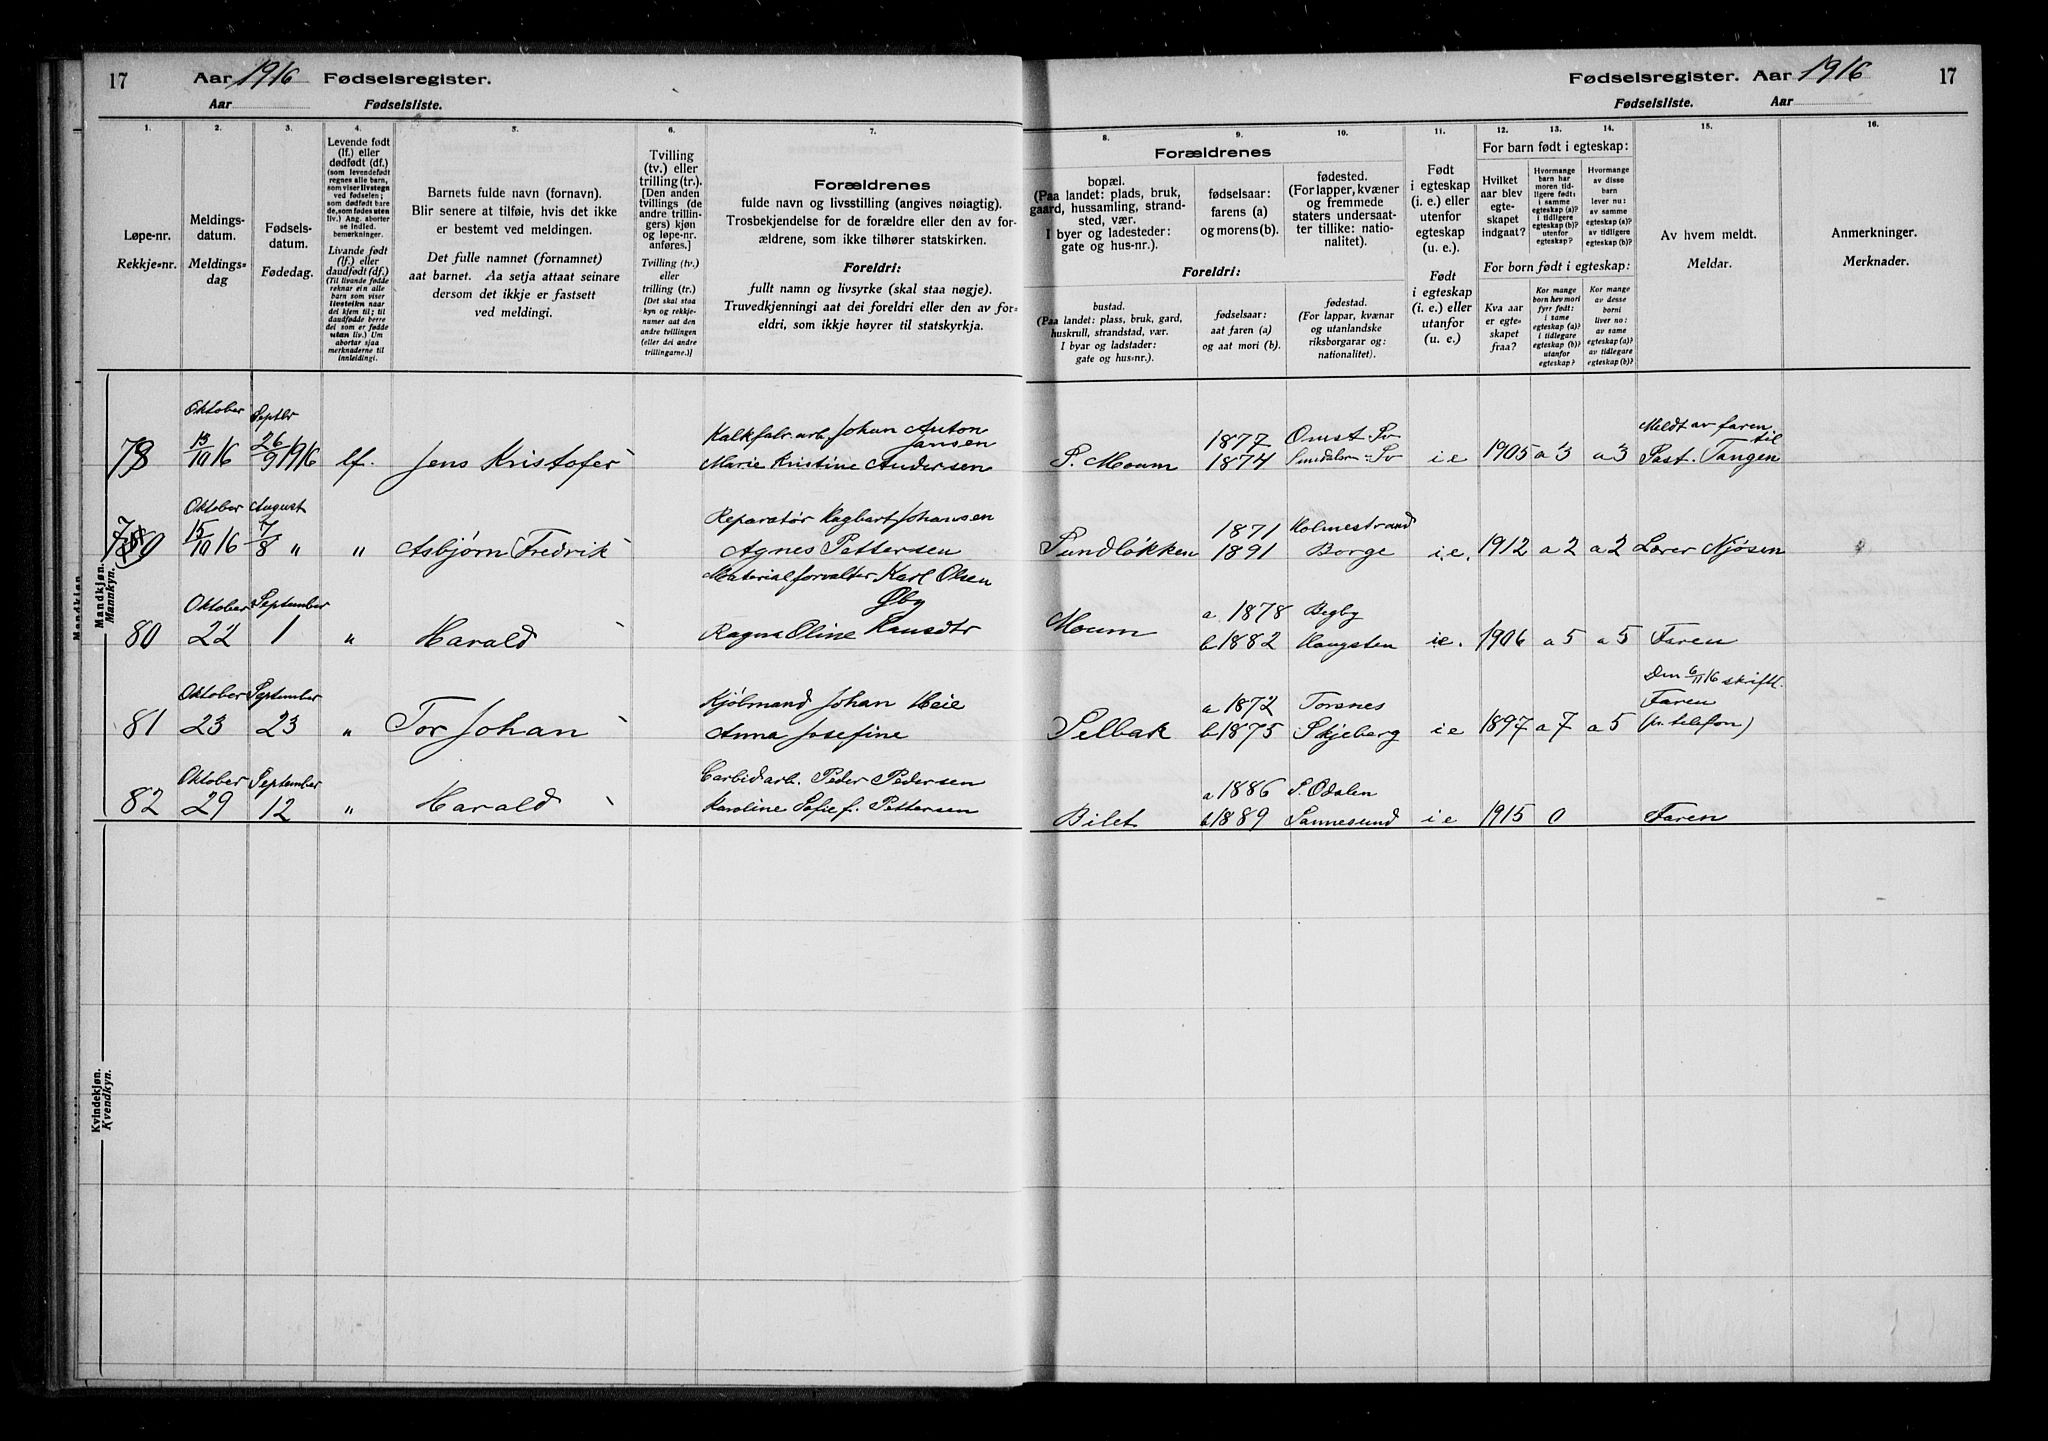 17 Aar 1916 Fødselsregister.
Aar Fødselsliste.
Fødselsregister. Aar 1916 17
Fødselsliste. Aar
1. 2. 3. 4. 5. 6. 7. 8. 9. 10. 11. 12. 13. 14. 15. 16.
Løpe-nr.
Rekkje-nr.
Meldings-
datum.
Meldings-
dag
Fødsels-
datum.
Fødedag.
Levende født
(lf.) eller
dødfødt (df.)
(som levendefødt
regnes alle barn,
som viser livstegn
ved fødselen;
som dødfødt bare
de, som fødes uten
liv.) Ang. aborter
se indled.
bemerkninger.
Livande født
(lf.) eller
daudfødt (df.)
(Til livande fødde
reknar ein alle
barn som viser
livsteikn naar
dei kjem til; til
daudfødde berre
dei som er fødde
utan liv.) Um
abortar sjaa
merknaderne til
innleidingi.
Barnets fulde navn (fornavn).
Blir senere at tilføie, hvis det ikke
er bestemt ved meldingen.
Det fulle namnet (fornamnet)
aat barnet. Aa setja attaat seinare
dersom det ikkje er fastsett
ved meldingi.
Tvilling
(tv.) eller
trilling (tr.).
[Den anden
tvillings (de
andre trillin-
gers) kjøn
og løpe-nr.
anføres.]
Tvilling (tv.)
eller
trilling (tr.)
[Det skal staa
kyn og rekkje-
numer aat den
andre tvillingen
(eller dei andre
trillingarne.)]
Forældrenes
fulde navn og livsstilling (angives nøiagtig).
Trosbekjendelse for de forældre eller den av for-
ældrene, som ikke tilhører statskirken.
Foreldri:
fullt namn og livsyrke (skal staa nøgje).
Truvedkjenningi aat dei foreldri eller den av for-
eldri, som ikkje høyrer til statskyrkja.
Forældrenes
bopæl.
(Paa landet: plads, bruk,
gaard, hussamling, strand-
sted, vær.
I byer og ladesteder:
gate og hus-nr.).
fødselsaar:
farens (a)
og morens (b).
fødested.
(For lapper, kvæner
og fremmede
staters undersaat-
ter tillike: natio-
nalitet).
Foreldri:
bustad.
(Paa landet: plass, bruk, gard,
huskrull, strandstad, vær.
I byar og ladstader:
gate og hus-nr.).
fødselsaar:
aat faren (a)
og aat mori (b).
fødestad.
(For lappar, kvænar
og utanlandske
riksborgarar og:
nationalitet).
Født
i egteskap
(i. e.) eller
utenfor
egteskap
(u. e.).
Født
i egteskap
(i. e.) eller
utanfor
(u. e.)
For barn født i egteskap:
Hvilket
aar blev
egte-
skapet
indgaat?
Hvormange
barn har
moren tid-
ligere født:
i samme
egteskap (a)?
i tidligere
egteskap (b)?
utenfor
egteskap?
Hvormange
av disse
barn
lever nu:
av samme
egteskap (a)?
av tidligere
egteskap (b)?
For born født i egteskap:
Kva aar
er egte-
skapet
fraa?
Kor mange
born hev mori
fyrr født:
i same
egteskap (a)?
i tidlegare
egteskap (b)?
utanfor
egteskap?
Kor mange
av desse
borni
liver no:
av same
egteskap (a)?
av tidlegare
egteskap (b)?
Av hvem meldt.
Meldar.
Anmerkninger.
Merknader.
Mandkjøn.
Mannkyn.
Oktober Septbr Kalkfabr.arb. Johan Anton Jansen 1877 Meldt av faren til
78 15/10 16 26/9 1916 lf. Jens Kristofer Marie Kristine Andersen S. Moum 1874 i e 1905 a 3 a 3 Past. Tangen
Oktober August Reparatør Hagbart Johansen 1871 Holmestrand
79 15/10 16 7/8 " " Asbjørn Fredrik Agnes Pettersen Sundløkken 1891 Borge i.e. 1912 a 2 a 2 Lærer Njøsen
Materialforvalter Karl Olsen Øby
Oktober September a. 1878 Begby
80 22 1 " Harald Ragna Oline Hansdtr Moum b 1882 Haugsten i.e. 1906 a 5 a 5 Faren
Oktober September Kjølmand Johan Heie a 1872 Torsnes Den 6/11 16 skriftl.
81 23 23 " Tor Johan Anna Josefine Selbak b 1875 Skjeberg i e 1897 a 7 a 5 Faren (pr. telefon)
Oktober September Carbidarb. Peder Pedersen a 1886 S. Odalen
82 29 12 " Harald Karoline Sofie f. Pettersen Bilet b 1889 Sannesund i e 1915 0 Faren
Kvindekjøn.
Kvendkyn.